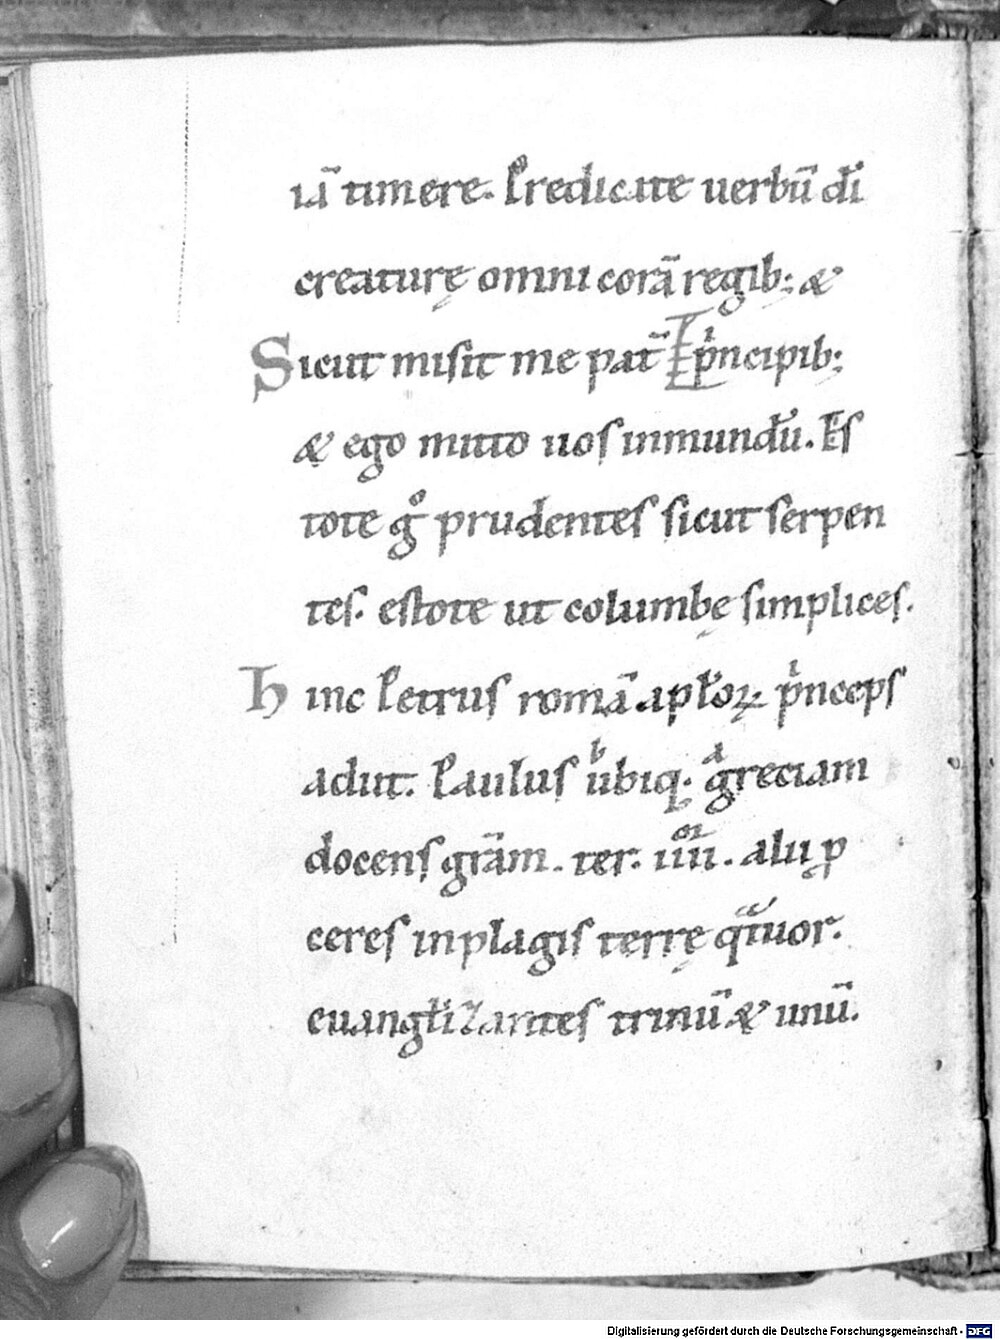 iā timere. Predicate uerbū dī
creaturę omni corā regib; &
Sicut misit me pat̄ p̍ncipib;
& ego mitto uos inmundū. Es
tote g̊ prudentes sicut serpen
tes. estote ut columbę simplices.
Hinc Petrus romā apłoꝝ p̍nceps
adiit. Paulus ůbiq. greciam
docens grām. ter. iiii. alii ꝓ
ceres inplagis terrę qͣtuor.
euangłizantes trinū & unū.
Digitalisierung gefördert durch die Deutsche Forschungsgemeinschaft - DFG